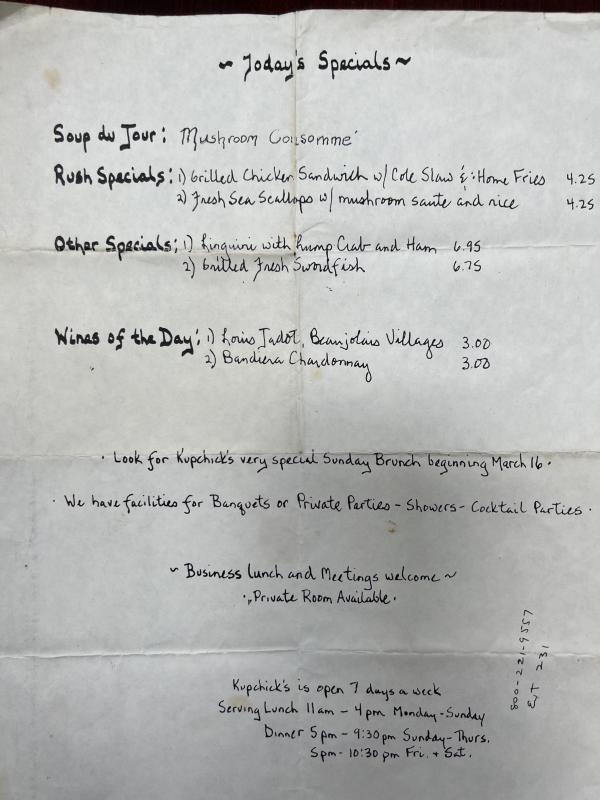 ~ Today's Specials ~
Soup du Jour: Mushroom Consommé
Rush Specials: 1) Grilled Chicken Sandwich w/ Cole Slaw & Home Fries 4.25
2) Fresh Sea Scallops w/ mushroom saute and rice 4.25
Other Specials: 1) Linguini with Lump Crab and Ham 6.95
2) Grilled Fresh Swordfish 6.75
Wines of the Day: 1) Louis Jadot, Beaujolais Villages 3.00
2) Bandiera Chardonnay 3.00
· Look for Kupchick's very special Sunday Brunch beginning March 16 ·
· We have facilities for Banquets or Private Parties - Showers - Cocktail Parties ·
~ Business Lunch and Meetings welcome ~
· Private Room Available ·
Kupchick's is open 7 days a week
Serving Lunch 11am - 4pm Monday - Sunday
Dinner 5pm - 9:30pm Sunday - Thurs.
5pm - 10:30pm Fri. + Sat.
800-221-9557
Ext 231